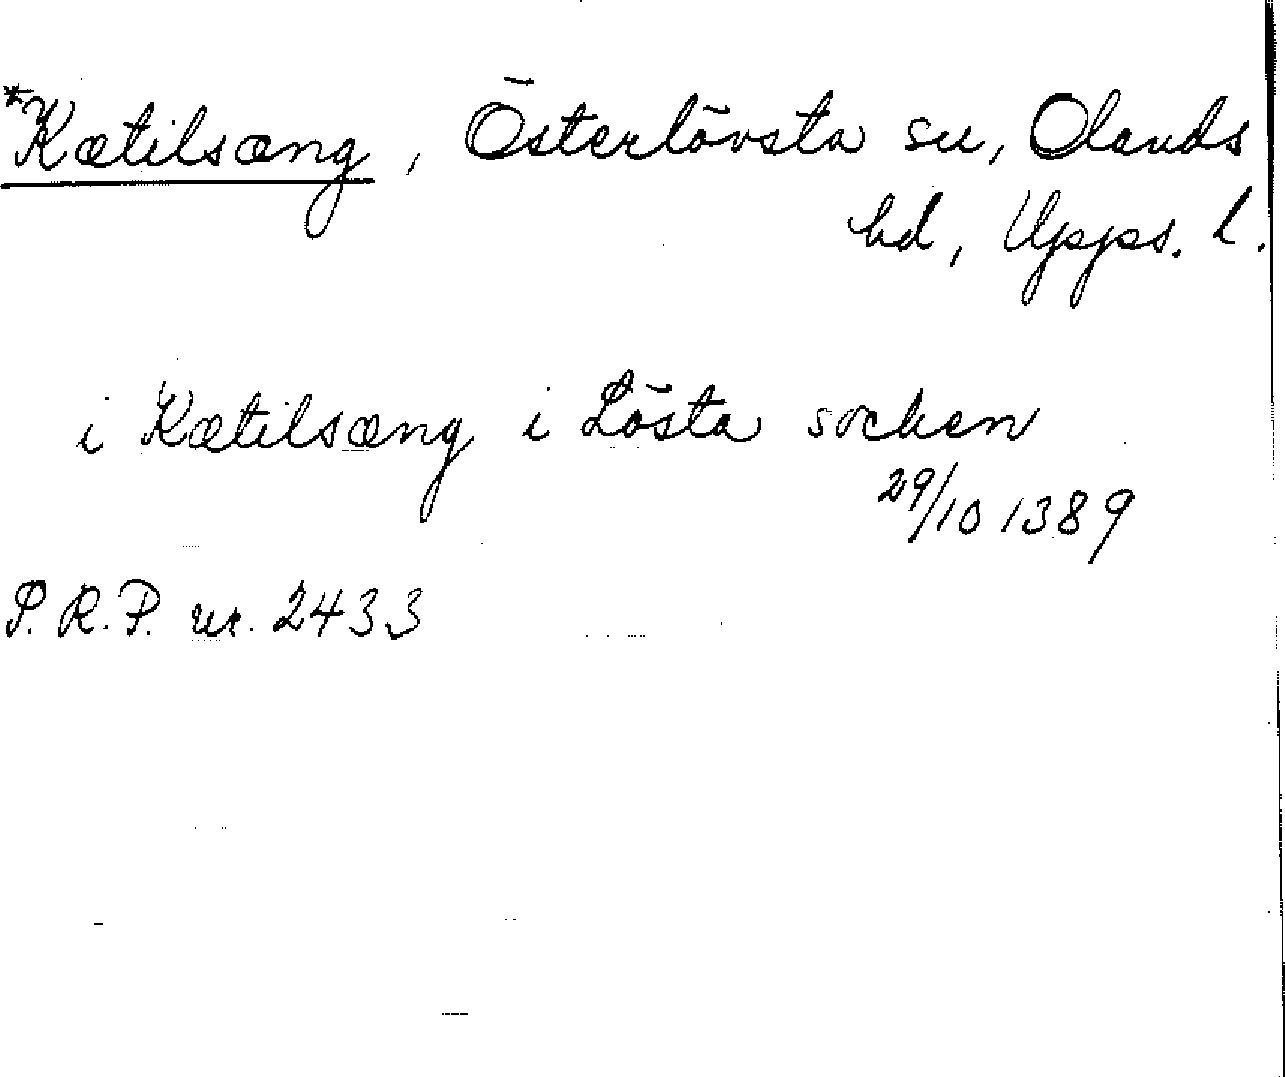 *Kætilsæng, Österlövsta sn, Olands
hd, Upps. l.
i Kætilsæng i Lösta socken
29/10 1389
P.R.P. nr. 2433